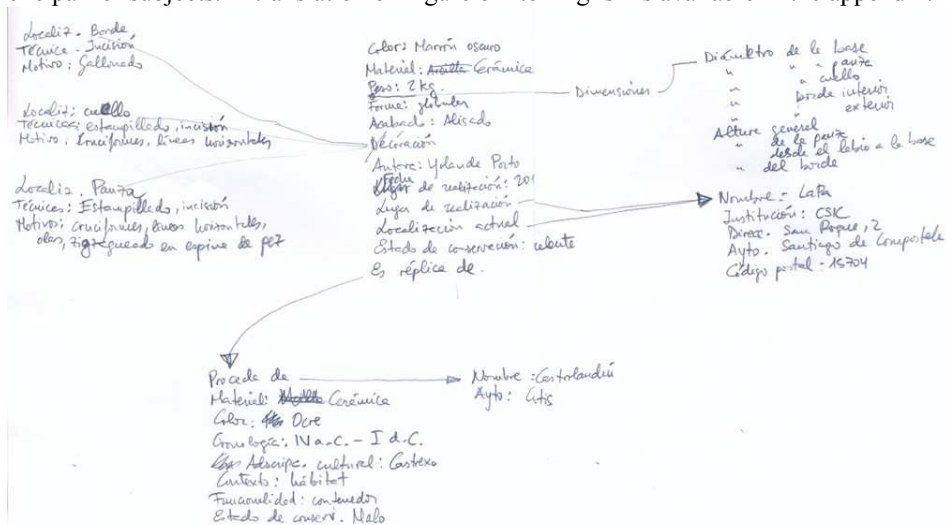 Localiz. Borde
Técnica. Incisión
Motivo: Gallonado
Localiz: cuello
Técnicas: estampillado, incisión
Motivo, Cruciformes, líneas horizontales
Localiz. Panza
Técnicas: Estampillado, incisión
Motivos: cruciformes, líneas horizontales,
olas, zigzagueado en espina de pez
Color: Marrón oscuro
Material: Arcilla Cerámica
Peso: 2 kg.
Forma: globular
Acabado: Alisado
Decoración
Autora: Yolanda Porto
Fecha
Lugar de realización: 201
Lugar de realización
Localización actual
Estado de conservación:
Es réplica de.
Dimensiones
Diámetro de la base
" " " panza
" " cuello
" borde interior
" " exterior
Altura general
" de la panza
" desde el labio a la base
" del borde
Nombre: LaPa
Institución: CSIC
Direc. San Roque, 2
Ayto. Santiago de Compostela
Código postal: 15704
Procede de
Material: Cerámica
Color: Ocre
Cronología: IV a.C. - I d.C.
Adscripc. cultural: Castrexo
Contexto: hábitat
Funcionalidad: contenedor
Estado de conserv. Malo
Nombre: Castrolandín
Ayto: